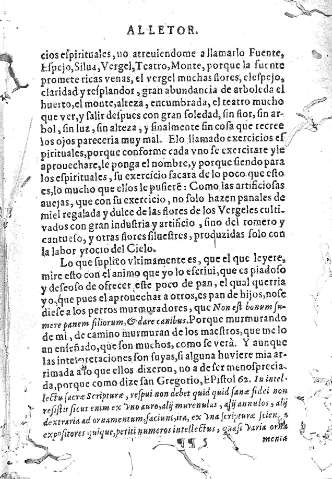 ALLETOR.
cios espirituales, no atreuiendome a llamarlo Fuente,
Espejo, Silua, Vergel, Teatro, Monte, porque la fuente
promete ricas venas, el vergel muchas flores, el espejo,
claridad y resplandor, gran abundancia de arboleda el
huerto, el monte, alteza, encumbrada, el teatro mucho
que ver, y salir despues con gran soledad, sin flor, sin ar-
bol, sin luz, sin alteza, y finalmente sin cosa que recree
los ojos pareceria muy mal. Elo llamado exercicios es
pirituales, porque conforme cada vno se exercitare y le
aprouechare, le ponga el nombre, y porque siendo para
los espirituales, su exercicio sacara de lo poco que esto
es, lo mucho que ellos le pusierē: Como las artificiosas
auejas, que con su exercicio, no solo hazen panales de
miel regalada y dulce de las flores de los Vergeles culti-
vados con gran industria y artificio, sino del romero y
cantuesso, y otras flores siluestres, produzidas solo con
la labor y rocio del Cielo.
Lo que suplico vltimamente es, que el que leyere,
mire esto con el animo que yo lo escriui, que es piadoso
y desseoso de ofrecer este poco de pan, el qual querria
yo, que pues el aprouechar a otros, es pan de hijos, no se
diesse a los perros murmuradores, que Non est bonum su-
mere panem filiorum, & dare canibus. Porque murmurando
de mi, de camino murmuran de los maestros, que me lo
an enseñado, que son muchos, como se verà. Y aunque
las interpretaciones son suyas, si alguna huviere mia ar-
rimada a lo que ellos dizeron, no a de ser menosprecia-
da, porque como dize san Gregorio, EPistol 62. In intel-
lectu sacræ Scripturæ, respui non debet quid quid sanæ fidei non
resistit sicut enim ex vno auro, alij murenulas, alij annulos, alij
dextraria ad ornamentum, faciunt, ita, ex vna scripturæ scien,
expositores quique, petiti numeros intellectus, quasi varia orna
¶¶5 menta